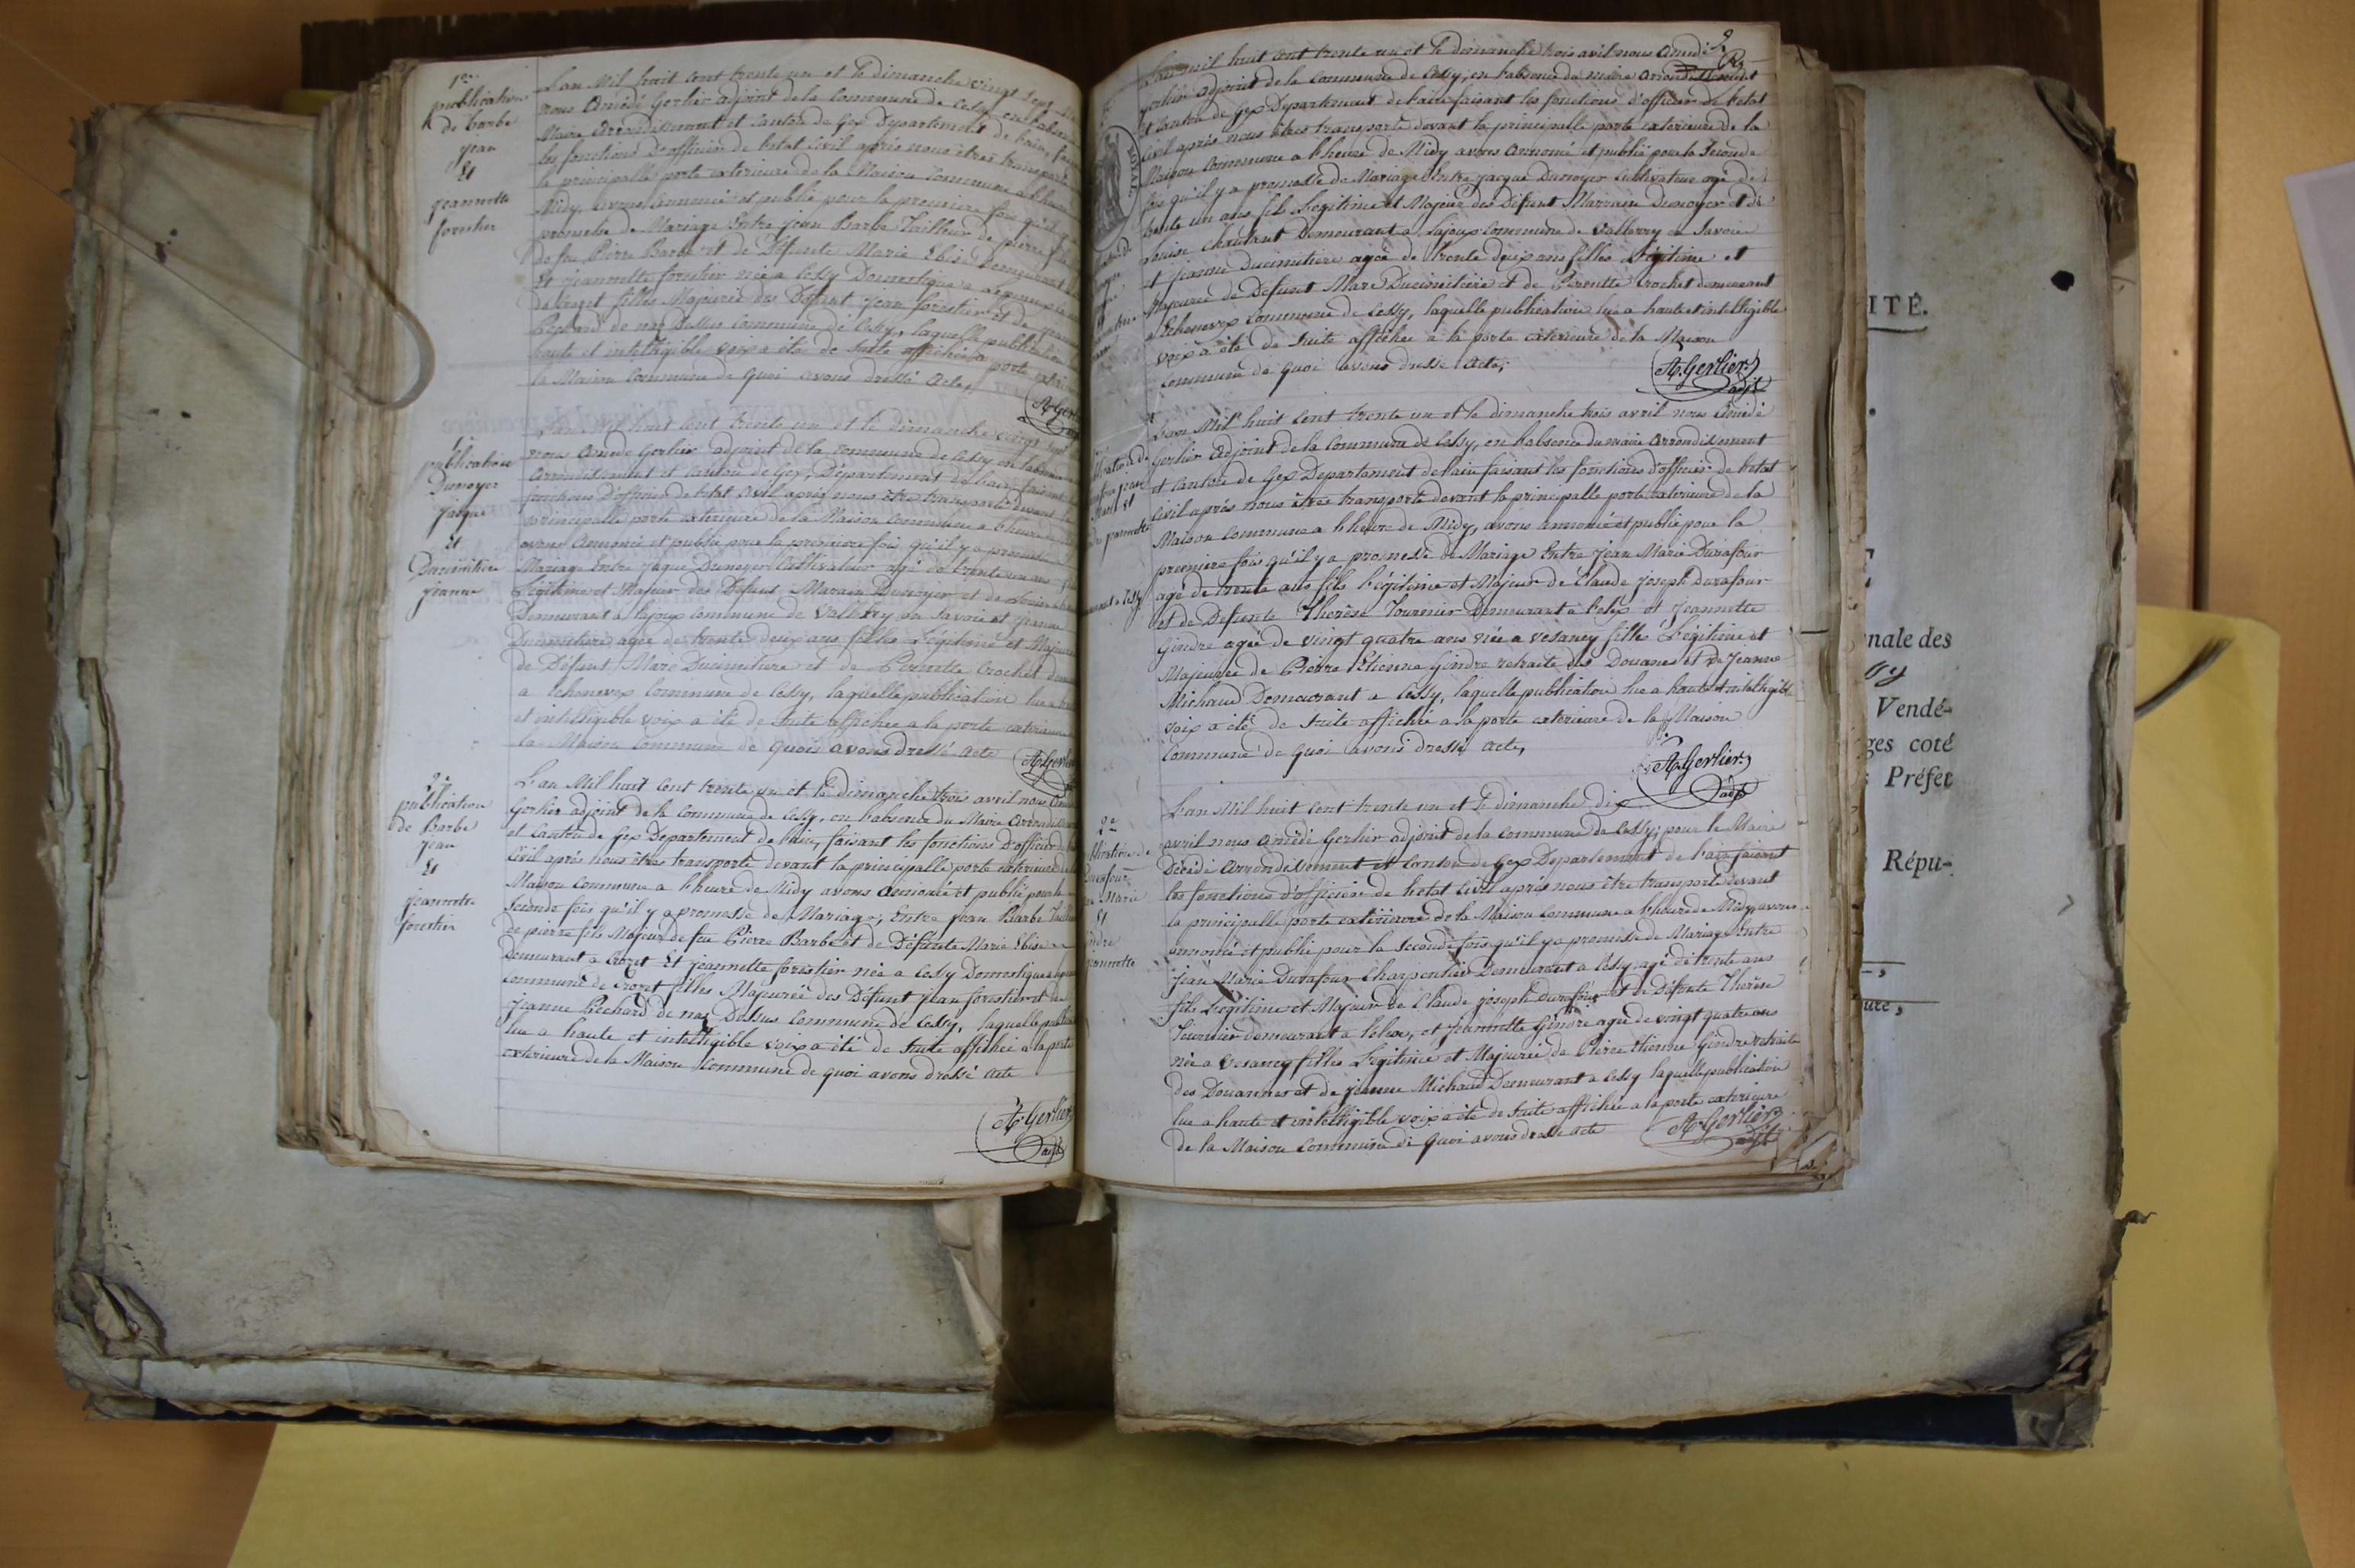 1ere
publication
de barbe
jean
Et
jeannette
forestier
L'an Mil huit Cent trente un et le dimanche vingt Sept
nous Amédé Gerlier adjoint de la Commune de Cessy, en
Maire Arrondissement et Canton de Gex Departement de l'ain,
les fonctions D'officier de l'etat Civil après nous être transporté
la principalle porte exterieure de la Maison Commune a l'heure
Midy, avons annoncé et publié pour la premiere fois qu'il y a
promesse de Mariage Entre jean Barbe Tailleur de pierre fils
de feu Pierre Barbe et de Défunte Marie Ebise Demeurant
Et jeannette forestier née a Cessy Domestique a
de Crozet filles Majeurée des Défunt jean forestier et de jeanne
Pechard de naz Dessus Commune de Cessy, laquelle publication
haute et intelligible voix a été de suite affichée a porte
la Maison Commune de quoi avons dressé acte,
A. Gerlier
1e
publication
Dunoyer
jacque
Et
Ducimitiere
jeanne
L'an Mil huit Cent trente un et le dimanche vingt Sept
nous Amédé Gerlier adjoint de la Commune de Cessy en
Arrondissement et Canton de Gex, Département de l'ain, faisant
fonctions D'officier de l'etat Civil après nous être transporté devant
principalle porte exterieure de la Maison Commune a l'heure
avons Annoncé et publié pour la premiere fois qu'il y a promesse
Mariage Entre jaque Dunoyer Cultivateur agé de trente un ans
Légitime et Majeur des Défunt Marain Dunoyer et de Louise
Demeurant a lajoux Commune de Vallerry en Savoie et jeanne
Ducimitiere agée de trente deux ans filles Légitime et Majeure
de Défunt Marc Ducimitiere et de Pernette Crochet
a Echenevex Commune de Cessy, laquelle publication lue a
et intelligible voix a été de suite affichée a la porte exterieure
la Maison Commune de quoi avons dressé acte
A. Gerlier
2e
publication
de Barbe
jean
Et
jeannette
forestier
L'an Mil huit Cent trente un et le dimanche trois avril nous
Gerlier adjoint de la Commune de Cessy, en l'absence du Maire
et Canton de Gex Departement de l'ain, faisant les fonctions D'officier
Civil après nous être transporté devant la principalle porte exterieure
Maison Commune a l'heure de Midy avons annoncé et publié pour la
Seconde fois qu'il y a promesse de Mariage, Entre jean Barbe
de pierre fils Majeur de feu Pierre Barbe et de Défunte Marie Ebise
Demeurant a Crozet Et jeannette forestier née a Cessy Domestique
Commune de Crozet filles Majeurée des Défunt jean forestier et
jeanne Pechard de naz Dessus Commune de Cessy, laquelle
lue a haute et intelligible voix a été de suite affichée a la porte
exterieure de la Maison Commune de quoi avons dressé acte
A. Gerlier
adjt
2
L'an mil huit cent trente un et le dimanche trois avril nous Amédé
gerlier adjoint de la Commune de Cessy, en l'absence du maire Arrondissement
et Canton de Gex Departement de l'ain faisant les fonctions d'officier de l'etat
Civil après nous être transporté devant la principalle porte exterieure de la
Maison Commune a l'heure de Midy avons annoncé et publié pour la Seconde
fois qu'il y a promesse de Mariage Entre jacque Dunoyer Cultivateur agé de
trente un ans fils Légitime et Majeur des Défunt Marrain Dunoyer et de
Louise Chautant Demeurant a Lajoux Commune de Vallerry en Savoie
et jeanne Ducimitiere agée de trente deux ans filles Légitime et
Majeurée de Défunt Marc Ducimitiere et de Pernette Crochet demeurant
a Echenevex Commune de Cessy, laquelle publication lue a haute et intelligible
voix a été de suite affichée a la porte exterieure de la Maison
Commune de quoi avons dressé acte,
ROYAL
A. Gerlier
adjt
L'an Mil huit Cent trente un et le dimanche trois avril nous Amédé
Gerlier Adjoint de la Commune de Cessy, en l'absence du maire Arrondissement
et Canton de Gex Departement de l'ain faisant les fonctions d'officier de l'etat
Civil après nous être transporté devant la principalle porte exterieure de la
Maison Commune a l'heure de Midy, avons annoncé et publié pour la
premiere fois qu'il y a promesse de Mariage Entre jean Marie Durafour
agé de trente ans fils Légitime et Majeur de Claude joseph Durafour
et de Défunte Therèse Tournier Demeurant a Lelex et jeannette
Gindre agée de vingt quatre ans née a vesancy filles Légitime et
Majeurée de Pierre Etienne Gindre retraité des Douanes et de Jeanne
Michaud Demeurant a Cessy, laquelle publication lue a haute et intelligible
voix a été de suite affichée a la porte exterieure de la Maison
Commune de quoi avons dressé acte,
A. Gerlier
adjt
2e
L'an Mil huit Cent trente un et le dimanche dix
avril nous Amédé Gerlier adjoint de la Commune de Cessy, pour le Maire
Décédé Arrondissement et Canton de Gex Departement de l'ain faisant
les fonctions d'officier de l'etat Civil après nous être transporté devant
la principalle porte exterieure de la Maison Commune a l'heure de Midy, avons
annoncé et publié pour la Seconde fois qu'il y a promesse de Mariage Entre
Jean Marie Durafour Charpentier Demeurant a Cessy agé de trente ans
fils Légitime et Majeur de Claude joseph Durafour et de Défunte Therèse
Tournier Demeurant a Lelex, et Jeannette Gindre agée de vingt quatre ans
née a Vesancy filles Légitime et Majeurée de Pierre Etienne Gindre retraité
des Douannes et de jeanne Michaud Demeurant a Cessy laquelle publication
lue a haute et intelligible voix a été de suite affichée a la porte exterieure
de la Maison Commune de quoi avons dressé acte
A. Gerlier
adjt
ITÉ.
nale des
Vendé-
ges coté
Préfet
Répu-